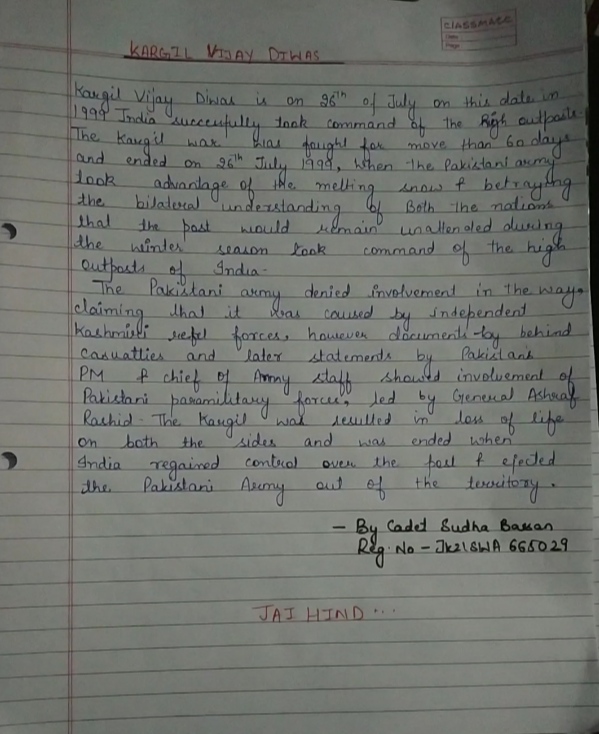 CLASSMATE
Date
Page
KARGIL VIJAY DIWAS
Kargil Vijay Diwas is on 26th of July on this date in
1999 India successfully took command of the high outposts.
The Kargil war was fought for more than 60 days
and ended on 26th July 1999, when the Pakistani army
took advantage of the melting snow & betraying
the bilateral understanding of Both the nations
that the post would remain unattended during
the winter season took command of the high
outposts of India.
The Pakistani army denied involvement in the way,
claiming that it was caused by independent
Kashmiri forces, however documents by behind
casuatties and later statements by Pakistani
PM & chief of Army staff showed involvement of
Pakistani paramilitary forces, led by General Ashraf
Rashid. The Kargil was resulted in loss of life
on both the sides and was ended when
India regained control over the post & ejected
the Pakistani Army out of the territory.
- By Cadet Sudha Bassan
Reg. No - JK21SWA 665029
JAI HIND...